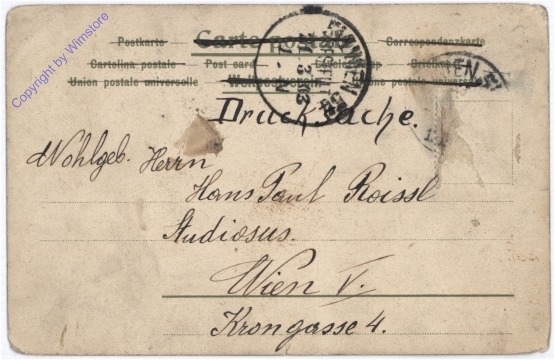 Postkarte Carte postale Correspondenzkarte
Cartolina postale Post card
Union postale universelle postale universelle
WIEN
Drucksache.
Wohlgeb. Herrn
Hans Paul Roissl
Studiosus.
Wien V.
Krongasse 4.
Copyright by Wimstore